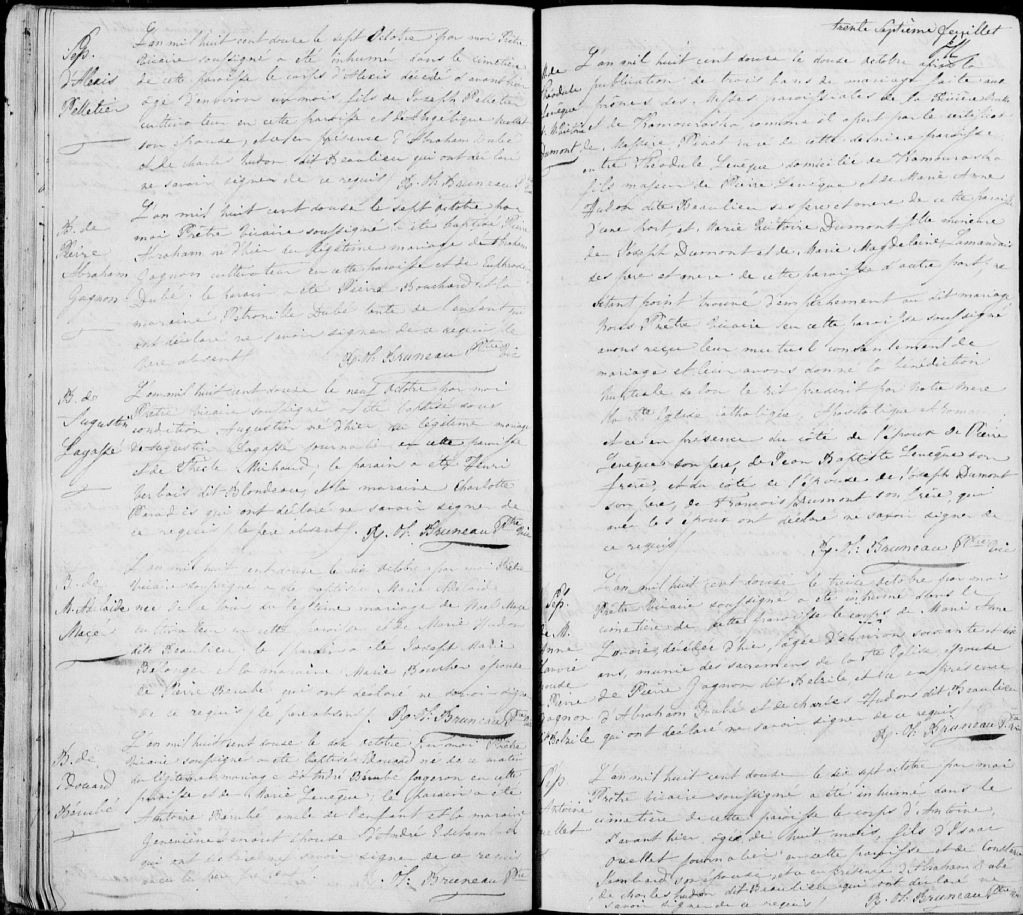 Sep.
d'Alexis
Pelletier
L'an mil huit cent douse le sept Octobre par moi Prêtre
vicaire soussigné a été inhumé dans le cimetière
de cette paroisse le corps d'Alexis décédé d'avant hier
âgé d'environ un mois, fils de Joseph Pelletier
cultivateur en cette paroisse et d'Angelique
son épouse, et ce en présence d'Abraham Dubé
et de charles hudon dit Beaulieu qui ont déclaré
ne savoir signer de ce requis / N. Th. Bruneau
B. de
Pierre
Abraham
Gagnon
L'an mil huit cent douse le sept octobre par
moi Prêtre vicaire soussigné a été baptisé Pierre
Abraham né d'hier en légitime mariage d'Abraham
Gagnon cultivateur en cette paroisse et de
Dubé. le parain a été Pierre Bouchard et la
maraine Petronille Dubé tante de l'enfant qui
ont déclaré ne savoir signer de ce requis le
pere absent / N. Th. Bruneau Ptre Vic
B. de
Augustin
Lagassé
L'an mil huit cent douse le neuf Octobre par moi
Prêtre vicaire soussigné a été baptisé sous
condition Augustin né d'hier du légitime mariage
d'Augustin Lagassé journalier en cette paroisse
et de Thècle Michaud; le parain a été Henri
Gerbais dit Blondeau, et la maraine Charlotte
Paradis qui ont déclaré ne savoir signer de
ce requis le père absent /. N. Th. Bruneau Ptre Vic
B. de
M. Adelaide
Macé
L'an mil huit cent douse le dix octobre par moi Prêtre
vicaire soussigné a été baptisée Marie Adelaide
née de ce jour du légitime mariage de Macé
cultivateur en cette paroisse et de Marie hudon
dite Beaulieu: le parain a été Joseph Marie
et la maraine Marie Boucher epouse
de Pierre Berubé qui ont déclaré ne savoir signer
de ce requis, le pere absent /. N. Th. Bruneau Ptre
B. de
Edouard
Bérubé
L'an mil huit cent douse le dix octobre, par moi Prêtre
vicaire soussigné a été baptisé Edouard né de ce matin
du légitime mariage d'André Berubé forgeron en cette
paroisse et de Marie Levêque; le Parain a été
Antoine Berubé oncle de l'enfant et la maraine
Genevieve épouse d'André
qui ont déclaré ne savoir signer de ce requis
le père présent / N. Th. Bruneau Ptre
trente septième feuillet
M. de
Théodule
Levêque
Dumont
L'an mil huit cent douse le douse octobre après la
publication de trois bans de mariage faite aux
prônes des Messes paroissiales de la Rivière Ouelle
et de Kamouraska comme il apert par le certificat
de Messire Pinet curé de cette dernière paroisse
entre Théodule Levêque domicilié de Kamouraska
fils majeur de Pierre Levêque et de Marie Anne
Hudon dite Beaulieu ses pere et mere de cette paroisse
d'une part et Marie Victoire Dumont fille mineure
de Joseph Dumont et de Marie Magdelaine
ses pere et mere de cette paroisse d'autre part; ne
s'étant point trouvé d'empêchement au dit mariage,
nous Prêtre vicaire en cette paroisse soussigné
avons reçu leur mutuel consentement de
mariage et leur avons donné la bénédiction
nuptiale selon le rit prescrit par notre mere
la Ste Eglise catholique, Apostolique et romaine
et ce en présence du côté de l'époux de Pierre
Levêque son pere, de Jean Baptiste Levêque son
frere, et du côté de l'épouse de Joseph Dumont
son pere, de François Dumont son frère, qui
avec les époux ont déclaré ne savoir signer de
ce requis / N. Th. Bruneau Ptre Vic
Sep.
de M.
Anne
Lavoie
épouse
Pierre
Gagnon
dit Belzile
L'an mil huit cent douse le treize octobre par moi
Prêtre vicaire soussigné a été inhumé dans le
cimetière de cette paroisse le corps de Marie Anne
Lavoie, décédée d'hier, âgée d'environ soixante et dix
ans, munie des sacremens de la Ste Eglise, épouse
de Pierre Gagnon dit Belzile et ce en présence
d'Abraham Dubé et de charles Hudon dit Beaulieu
qui ont déclaré ne savoir signer de ce requis /
N. Th. Bruneau Ptre Vic
Sep
Antoine
Ouellet
L'an mil huit cent douse le dix sept octobre par moi
Prêtre vicaire soussigné a été inhumé dans le
cimetière de cette paroisse le corps d'Antoine,
d'avant hier, âgé de huit mois, fils d'Isaac
Ouellet journalier en cette paroisse et de
son épouse, et ce en présence d'Abraham Dubé
de charles hudon dit Beaulieu qui ont déclaré ne
savoir signer de ce requis / N. Th. Bruneau Ptre